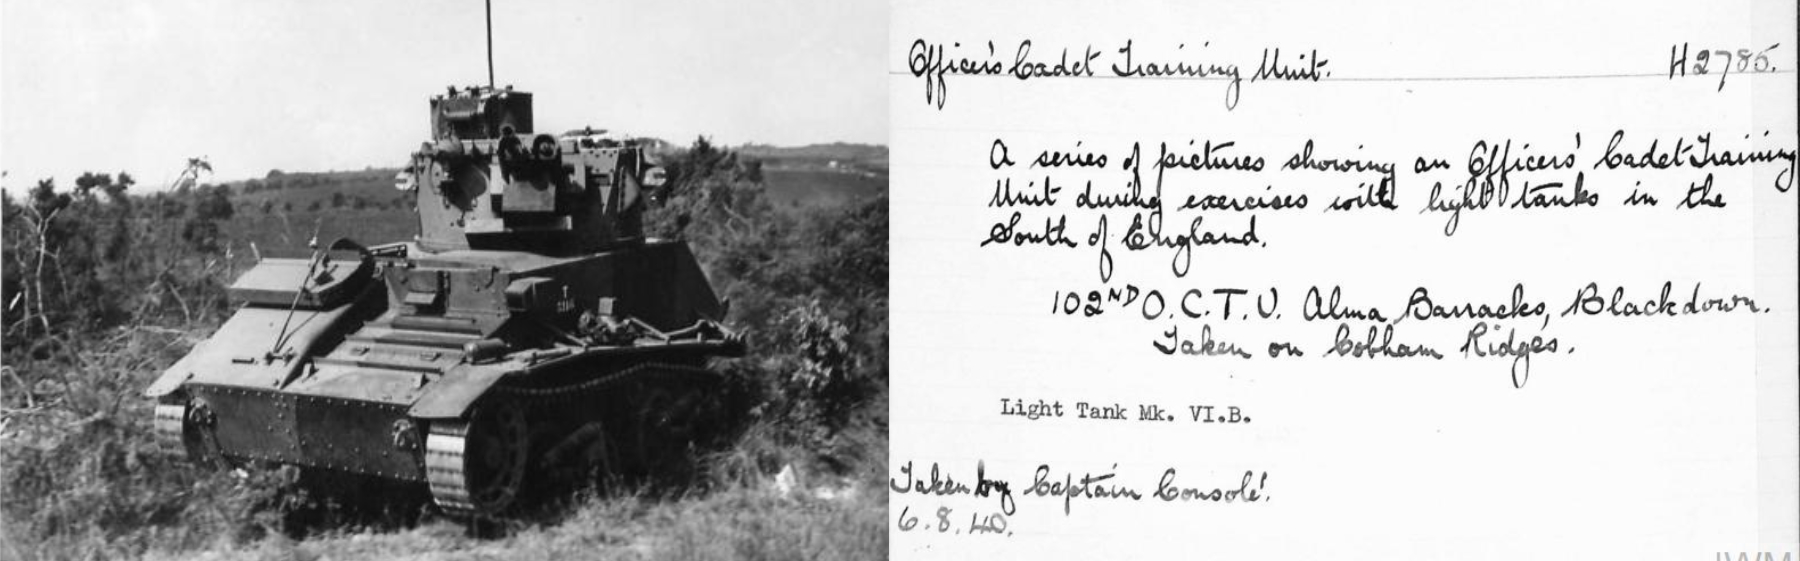 Officer's Cadet Training Unit. H2785.
A series of pictures showing an Officers' Cadet Training
Unit during exercises with light tanks in the
South of England.
102ND O.C.T.U. Alma Barracks, Blackdown.
Taken on Cobham Ridges.
Light Tank Mk. VI.B.
Taken by Captain Console.
6.8.40.
IWM